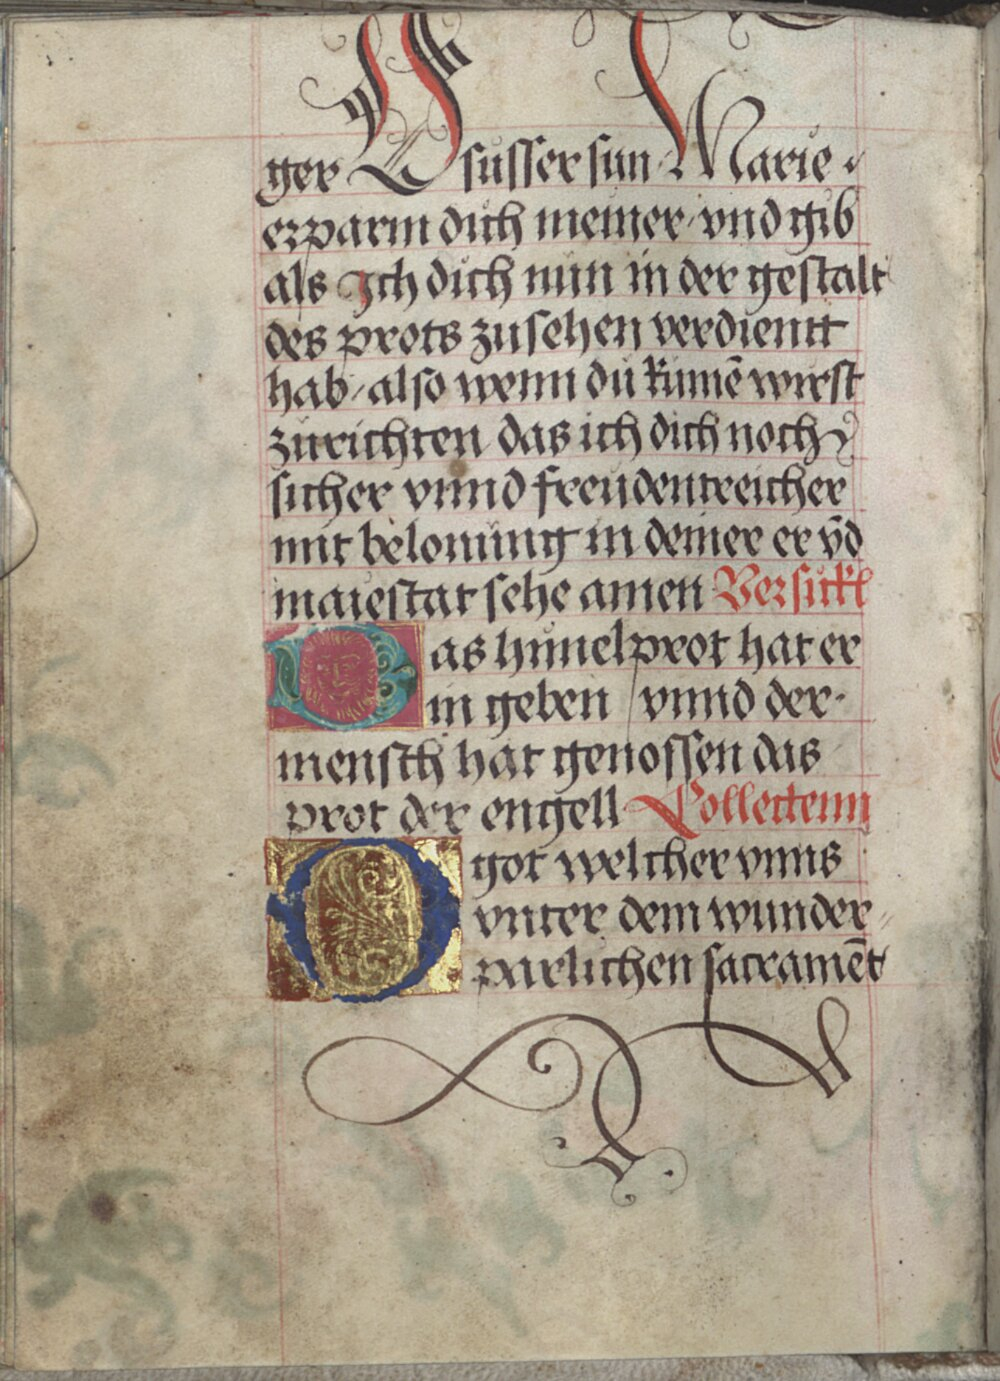 ger O süsser sun Marie ·
erparm dich meiner vnd gib
als Ich dich nun in der gestalt
des prots zusehen verdient
hab / also wenn dü kumē wirst
zürichten das ich dich noch
sicher vnnd freüdentreicher
mit belonüng in deiner er vn̄d
maiestat sehe amen Versickl
Das himelprot hat er
in geben / vnnd der
mensch hat genossen das
prot der engell Collectenn
O got welcher vnns
vnter dem wunder-
parlichen sacramēt